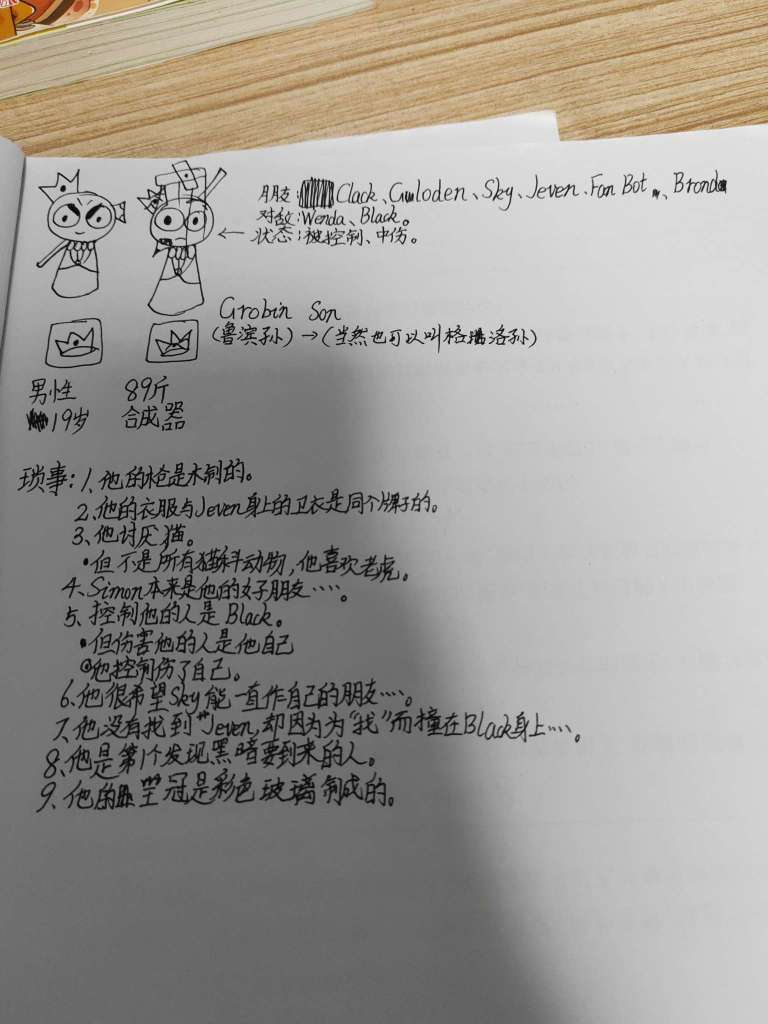 朋友:Clack、Guloden、Sky、Jeven、Fan Bot、Brond
对敌:Wenda、Black。
←状态:被控制、中伤。
Grobin Son
(鲁滨孙)→(当然也可以叫格洛孙)
男性 89斤
19岁 合成器
琐事:1、他的枪是木制的。
2、他的衣服与Jeven身上的卫衣是同个牌子的。
3、他讨厌猫。
•但不是所有猫科动物,他喜欢老虎。
4、Simon本来是他的好朋友····。
5、控制他的人是Black。
•但伤害他的人是他自己
他控制伤了自己。
6、他很希望Sky能一直作自己的朋友····。
7、他没有找到"Jeven,却因为为"找"而撞在Black身上····。
8、他是第1个发现黑暗要到来的人。
9、他的冠是彩色玻璃制成的。